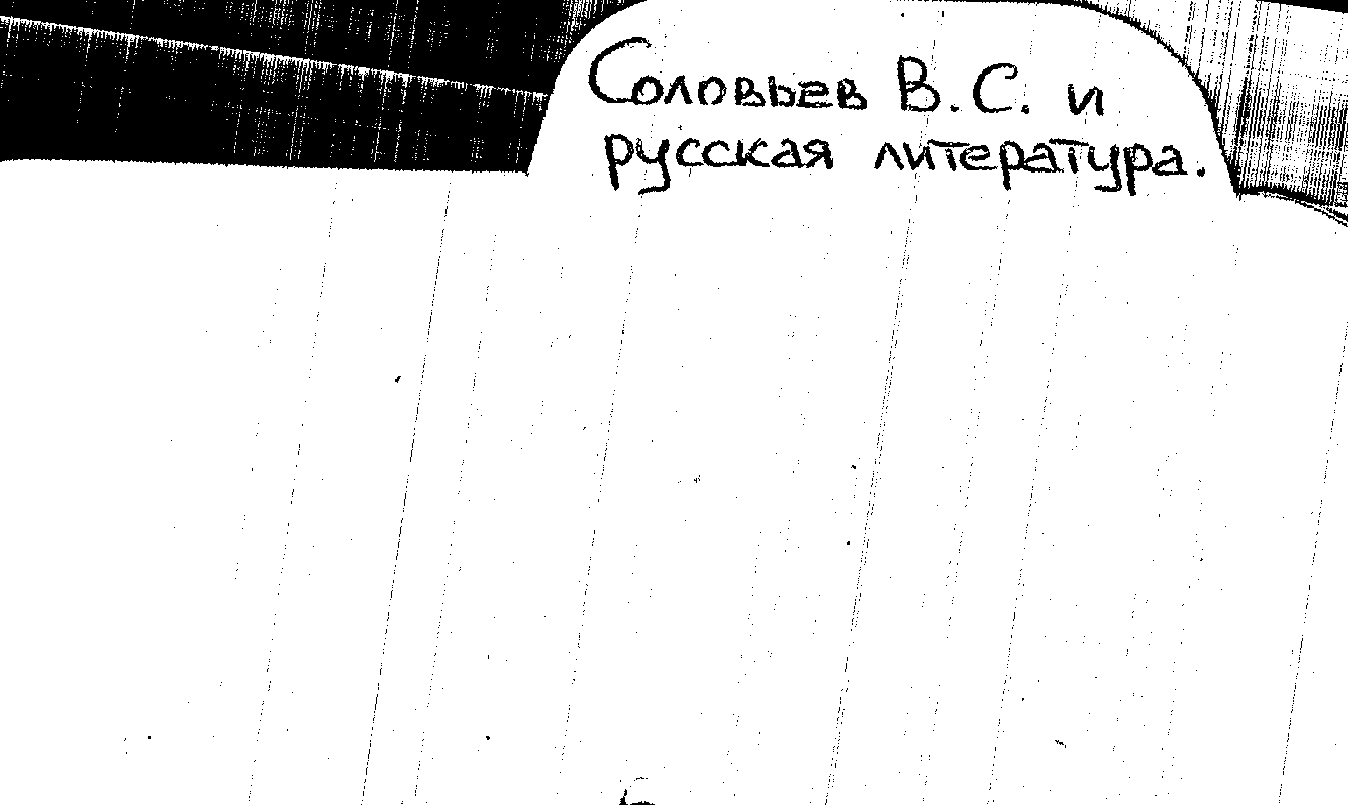 Соловьев В.С. и
русская литература.